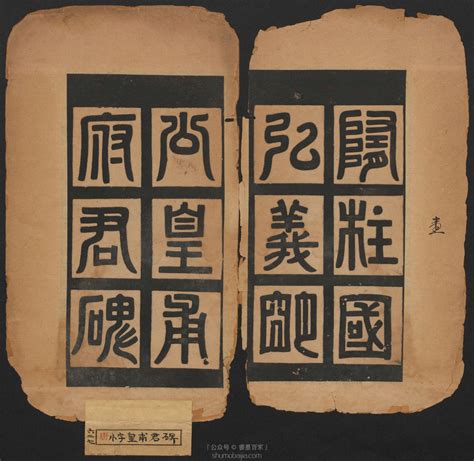 隋柱國
弘義明
公皇甫
府君碑
唐 小字皇甫君碑
「公众号 © 書墨百家」
shumobaijia.com